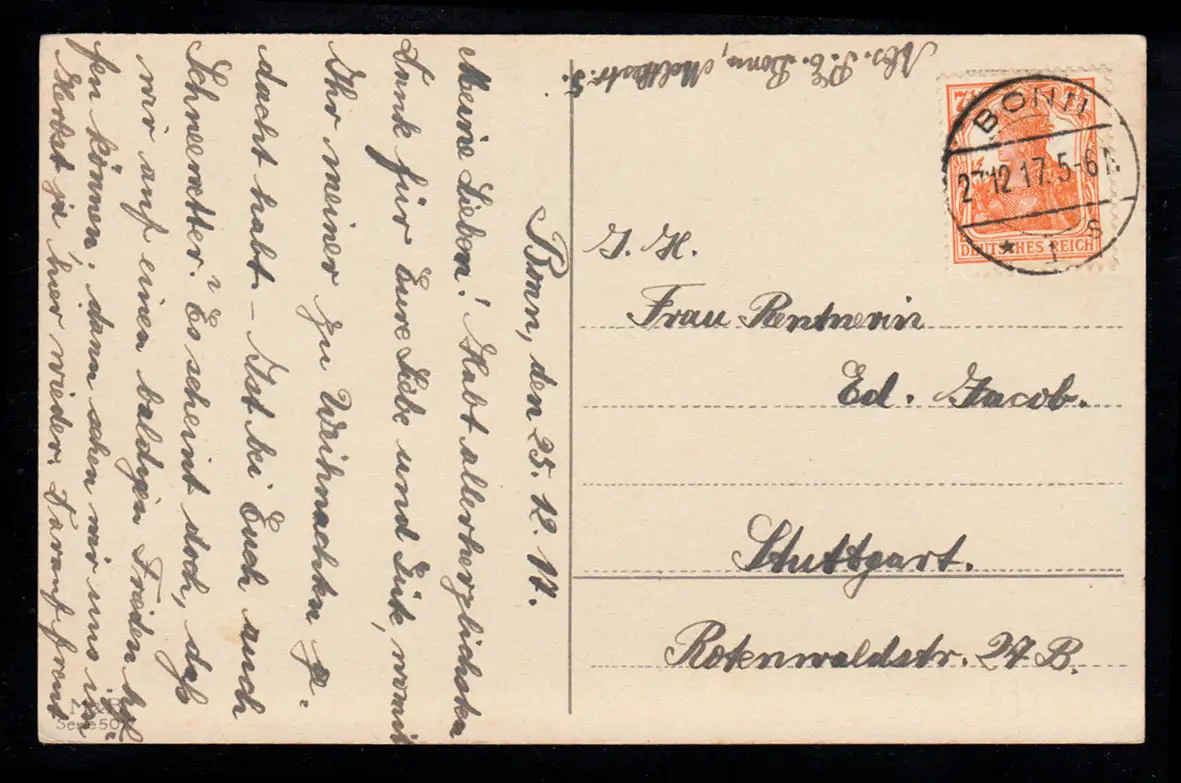 Abs. P. E. Bonn, Moltkestr. 5.
7½ 7½
DEUTSCHES REICH
BONN
27.12.17. 5-6 N
* 1 s
I. H.
Frau Rentnerin
Ed. Jacob.
Stuttgart.
Rotenwaldstr. 27 B.
Bonn, den 25. 12. 17.
Meine Lieben! Habt allerherzlichsten
Dank für Eure Liebe und Güte, womit
Ihr meiner zu Weihnachten ge-
dacht habt – Ist bei Euch auch
Schneewetter? Es scheint doch, daß
wir auf einen baldigen Frieden
fen können; dann sehen wir uns im
Herbst ja hier wieder. Darauf freut
Serie 50